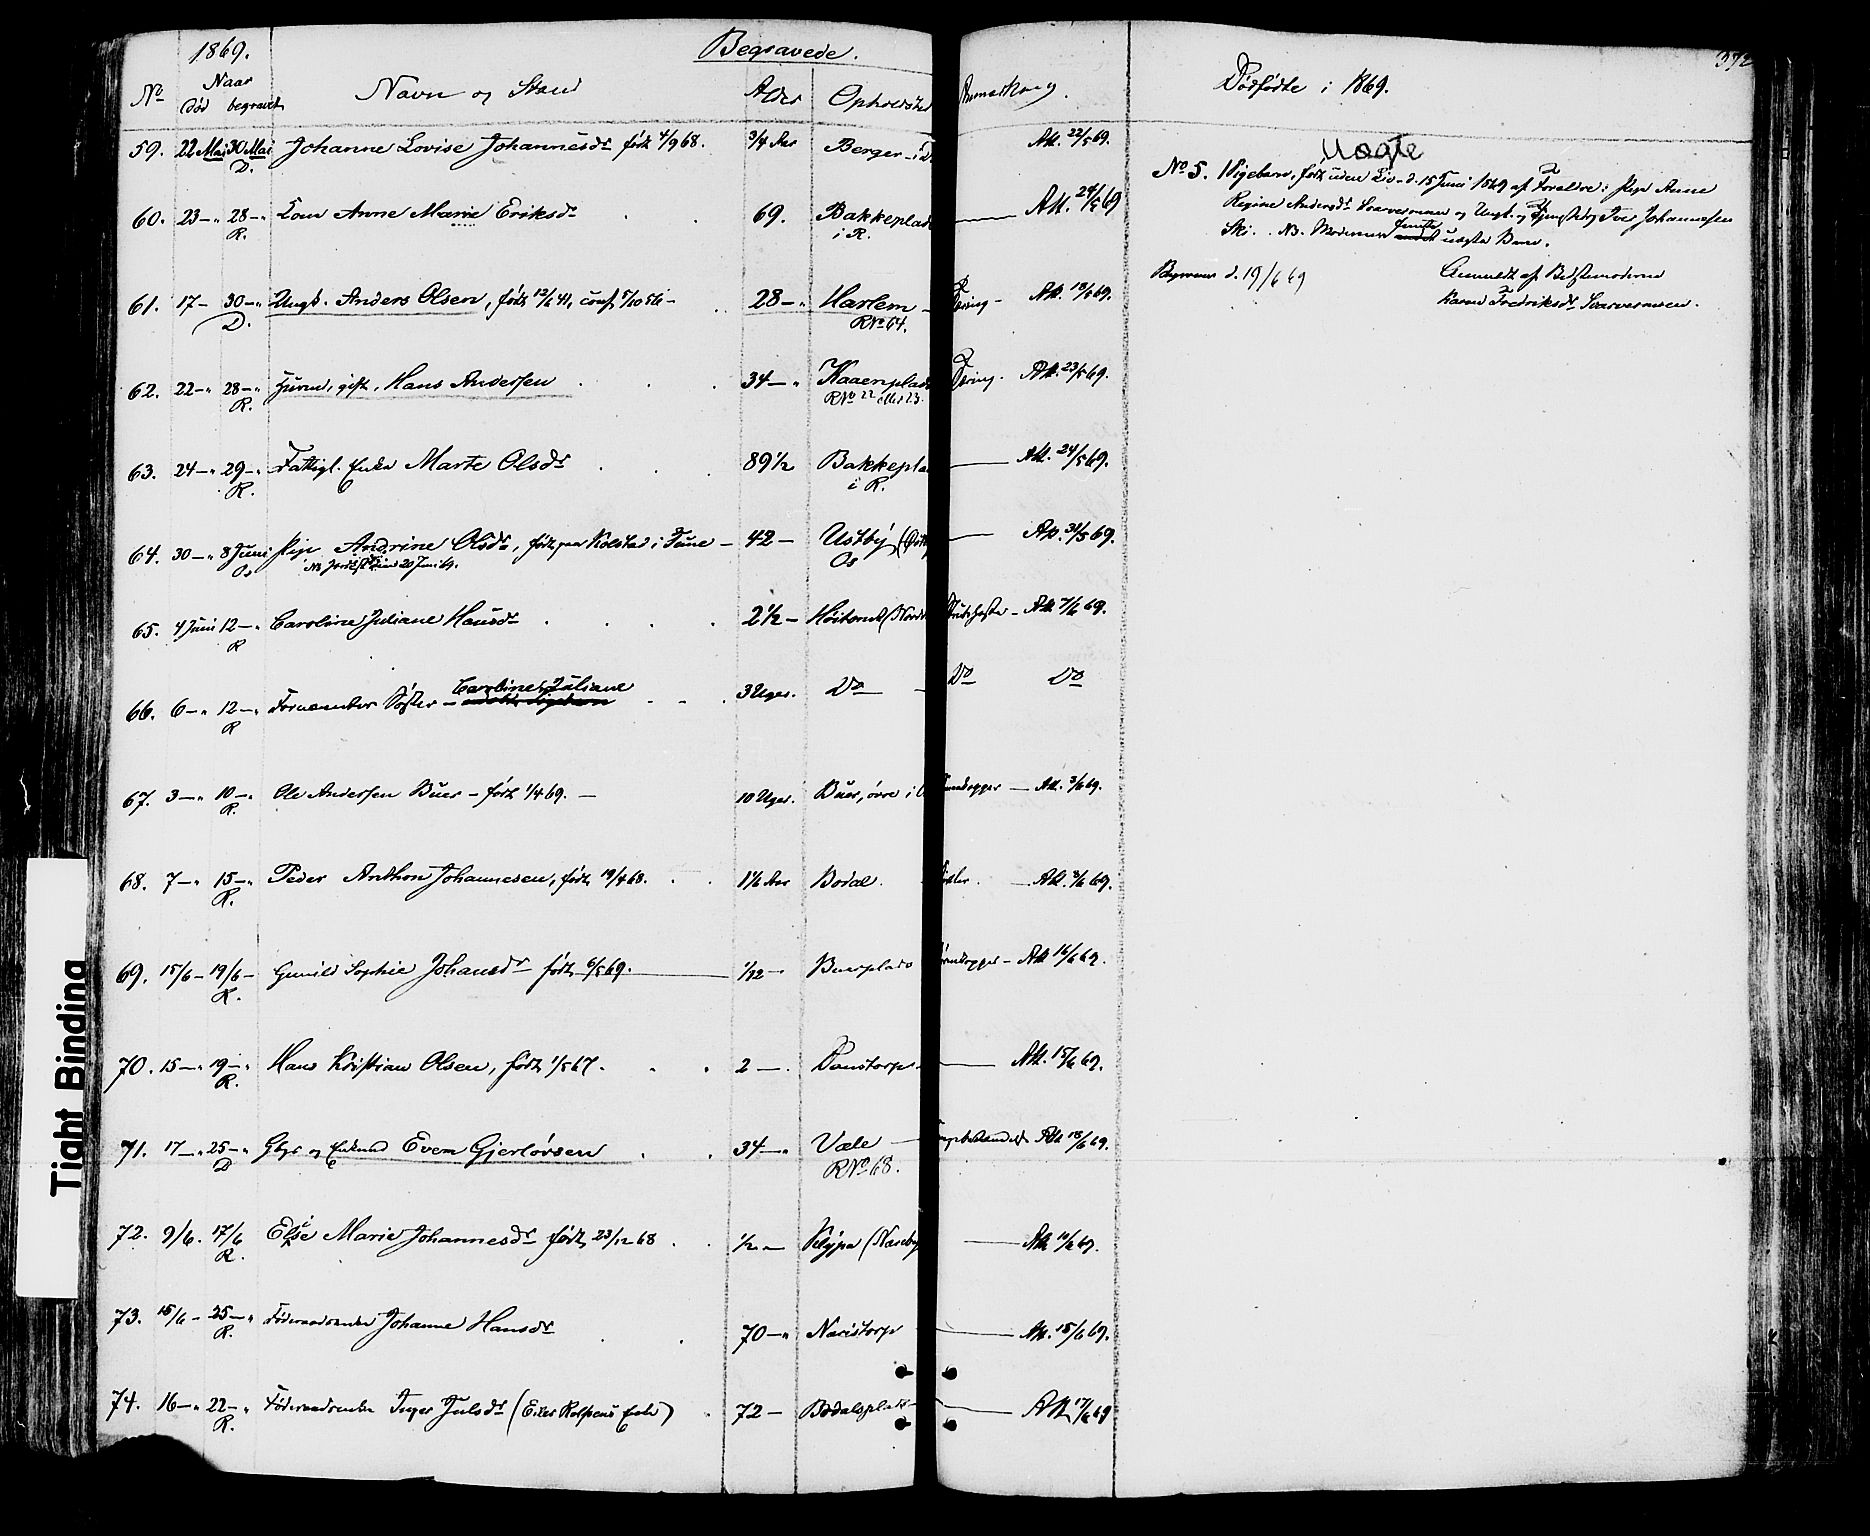 1869.
Begravede.
No Naar død begravet Navn og Stand Alder Opholdssted Anmerkning.
59. 22 Mai 30 Mai Johanne Lovise Johannesdr født 4/9 68. 3/4 Aar Berger Att. 22/5 69.
D.
60. 23 — " 28 — " Lem Anne Marie Eriksdr 69. Bakkeplads Att. 24/5 69
R. i R.
61. 17 — 30 — " Ungk. Anders Olsen, født 12/6 41, conf. 5/10 56 — 28 — " Harlem — Att. 18/5 69.
D. RNo 64.
62. 22 — " 28 — " gift. Hans Andersen 34 — " Kaaenplads Att. 23/5 69.
R. RNo 22 eller 23.
63. 24 — " 29 — " Fattigl. Enke Marte Olsdr 89 1/2 Bakkepla Att. 24/5 69.
R. i R.
64. 30 — " 8 Juni Pige Andrine Olsdr, født paa Kolstad i Tune — 42 — Ustby Att. 31/5 69.
Os Os
65. 4 Juni 12 — " Caroline Juliane Hansdr 2 1/2 — Høitomt (Nordre Att 7/6 69.
R
Caroline Juliane
66. 6 — " 12 — " Fornævntes Søster — 3 Uger. Do — Do Do
R
67. 3 — " 10 — " Ole Andersen Buer — født 1/4 69. — 10 Uger. Buer, øvre i Att. 3/6 69.
R.
68. 7 — " 15 — " Peder Anthon Johannesen, født 19/4 68. 1 1/6 Aar Bodal. Att. 8/6 69.
R.
69. 15/6 — 19/6 — Gunild Sophie Johansdr født 6/5 69. 1/12 — Buerplads Att 16/6 69.
R.
70. 15 — " 19 — " Hans Kristian Olsen, født 1/5 67. 2 — . Danstorp Att. 15/6 69.
R.
71. 17 — " 25 — " Gbgr og Enkmd Even Gjerløvsen 34 — " Væle Att 18/6 69.
D RNo 68.
72. 9/6. 17/6 Else Marie Johannesdr født 23/12 68 1/2 — Kljpa (Naseby Att 10/6 69.
R.
73. 15/6 — 25 — " Føderaadsenke Johanne Hansdr 70 — " Naristorp Att. 15/6 69.
R.
74. 16 — " 22 — " Føderaadsenke Inger Julsdr ( Enke) 72 — Bødalsplads Att 17/6 69
R.
372
Dødfødte i 1869.
Uægte
No 5. Pigebarn, født uden Liv d. 15 Juni 1869 af Forældre: Pige Anne
Regine Andersdr og Ungk. og Iver Johannesen
Ski. NB. Moderens uægte Barn.
Begraves d. 19/6 69 Anmeldt af Bedstemoderen
Karen Fredriksdr
Tight Binding